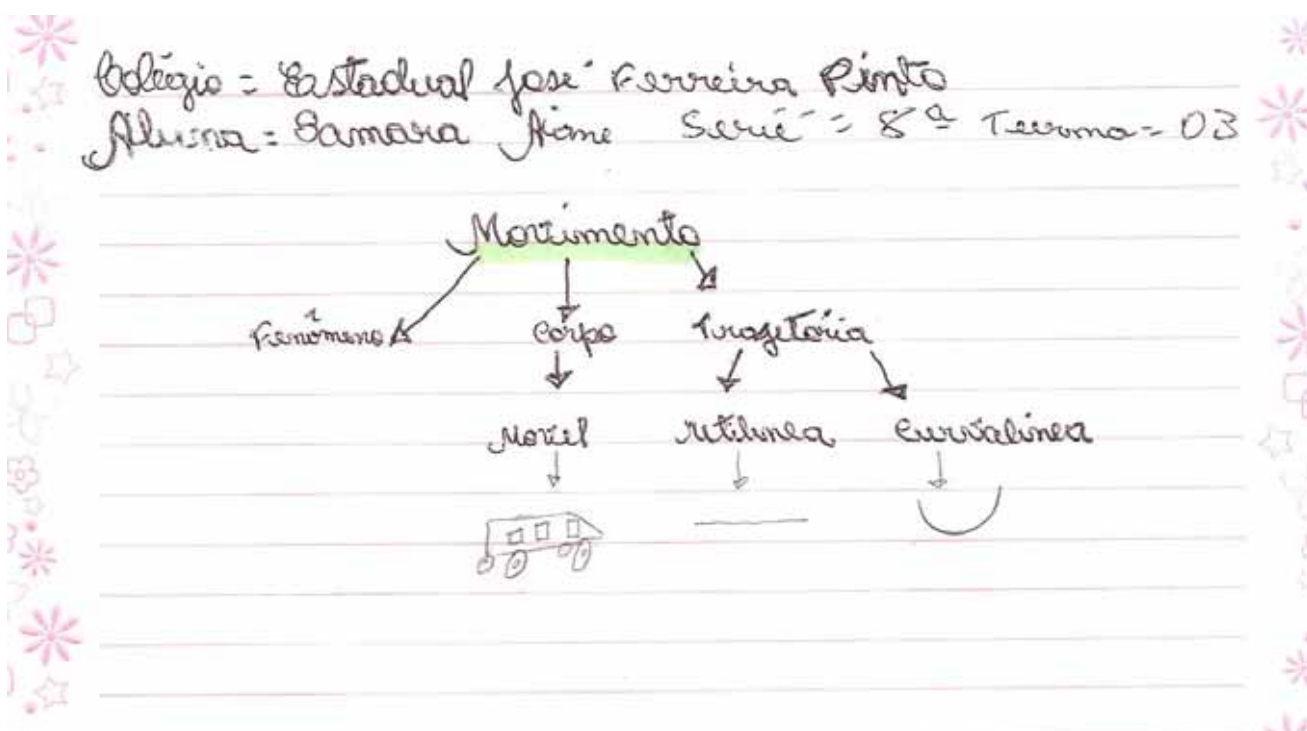 Colégio = Estadual José Ferreira Pinto
Aluna = Samara Série = 8ª Turma = 03
Movimento
Fenômeno Corpo Trajetória
Movel retilinea Curvalinea